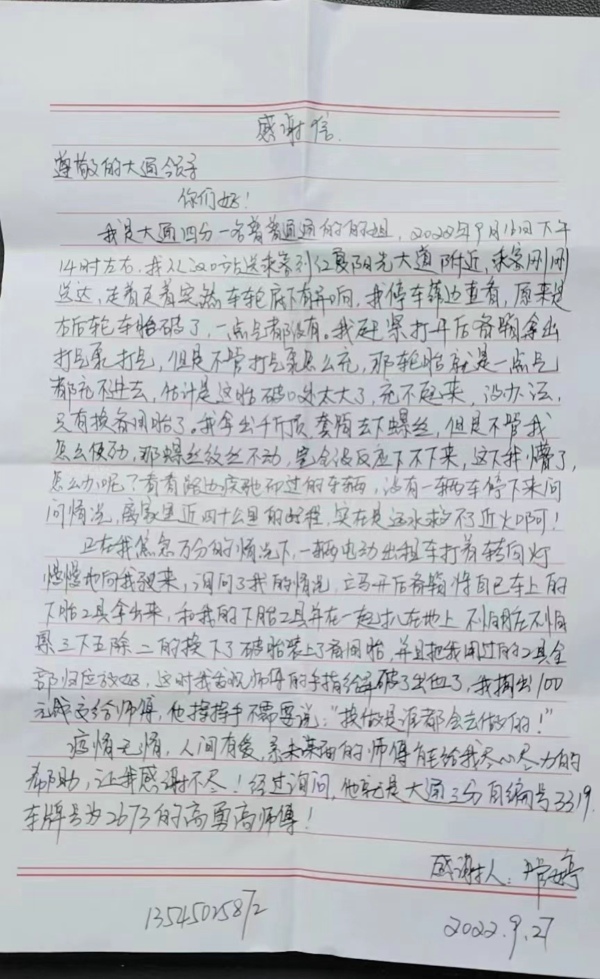 感谢信
尊敬的大通领导
你们好！
我是大通四分一名普普通通的的姐，2022年9月16日下午
14时左右，我从汉口站送乘客到江夏阳光大道附近，乘客刚刚
送达，走着走着突然车轮底下有异响，我停车靠边查看，原来是
右后轮车胎破了，一点气都没有。我赶紧打开后备箱拿出
打气泵打气，但是不管打气泵怎么充，那轮胎就是一点气
都充不进去，估计是这胎破口处太大了，充不起来，没办法，
只有换备用胎了。我拿出千斤顶，套筒去下螺丝，但是不管我
怎么使劲，那螺丝纹丝不动，完全没反应下不下来，这下我懵了，
怎么办呢？看看路边疾驰而过的车辆，没有一辆车停下来问
问情况，离家里近四十公里的路程，实在是远水救不了近火啊！
正在我焦急万分的情况下，一辆电动出租车打着转向灯
慢慢地向我驶来，询问了我的情况，立马开后备箱将自己车上的
下胎工具拿出来，和我的下胎工具并在一起趴在地上不怕脏不怕
累三下五除二的换下了破胎装上了备用胎，并且把我用过的工具全
部归位放好，这时我发现师傅的手指给弄破了出血了，我掏出100
元成交给师傅，他摆摆手不需要说："换做是谁都会去做的！"
疫情无情，人间有爱，素未谋面的师傅能给我尽心尽力的
帮助，让我感谢不尽！经过询问，他就是大通三分自编号3319
车牌号为2673的高勇高师傅！
感谢人：婷
13545025872 2022.9.27